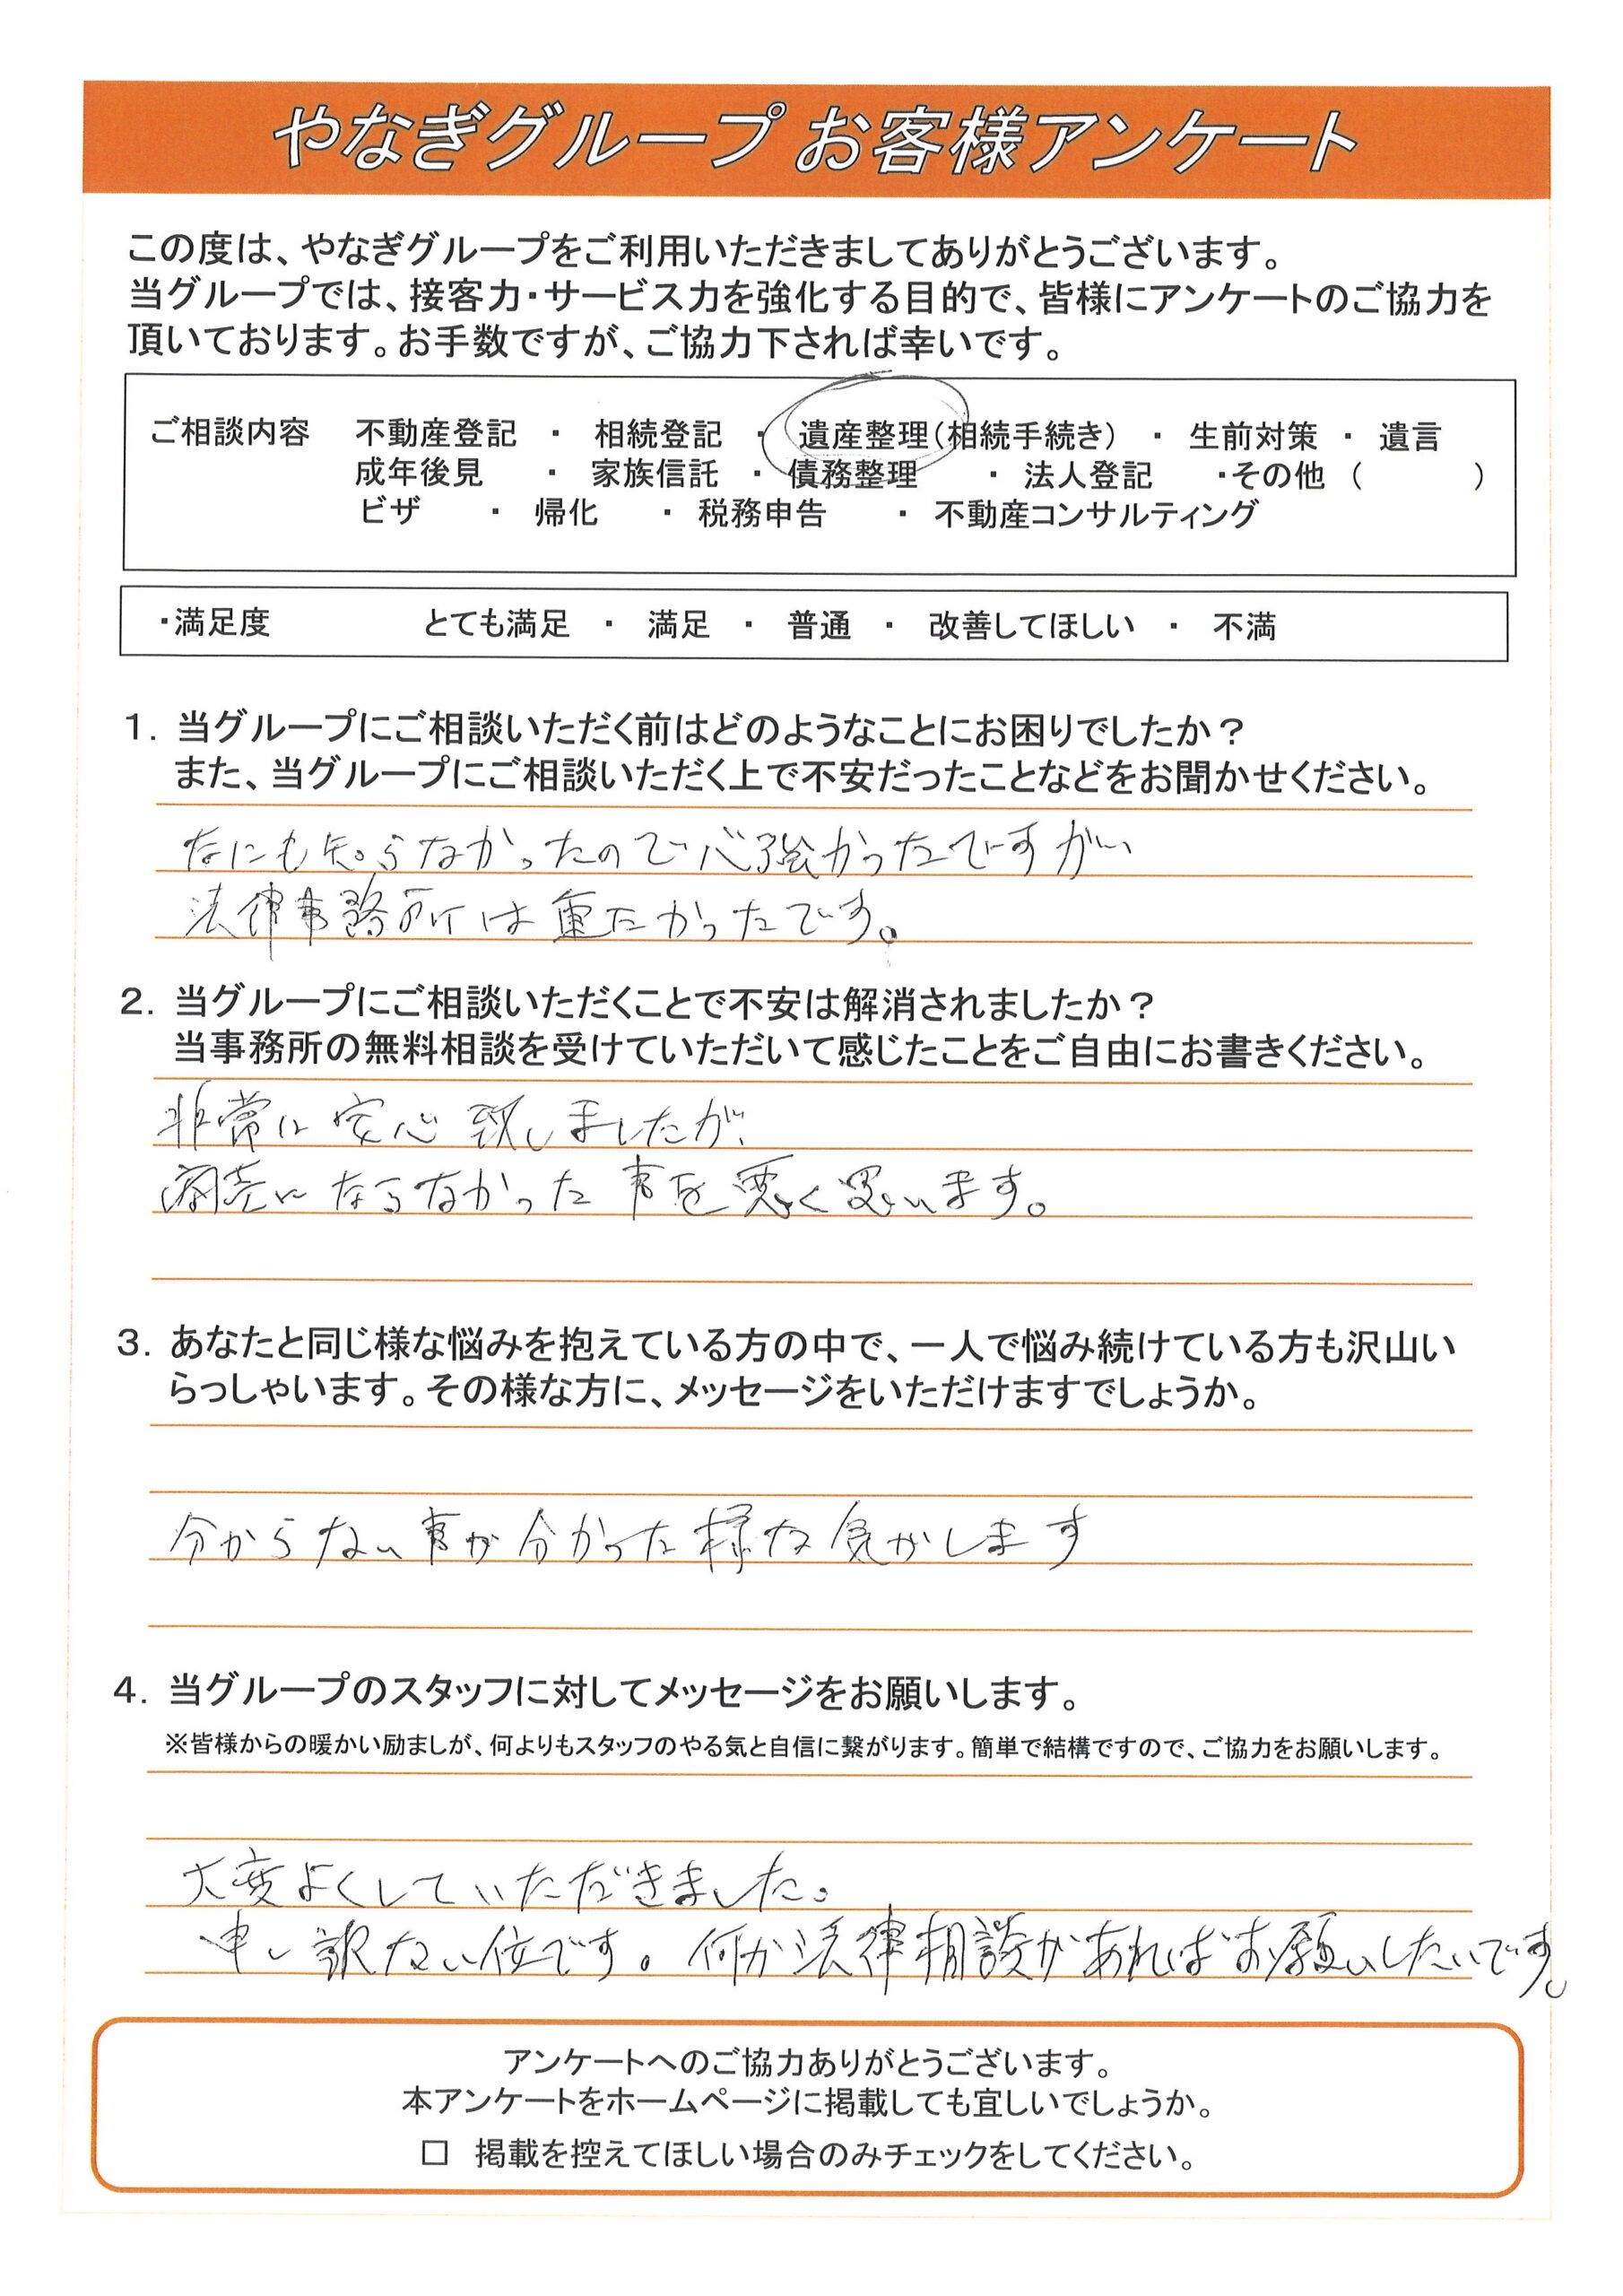 やなぎグループ お客様アンケート
この度は、やなぎグループをご利用いただきましてありがとうございます。
当グループでは、接客力・サービス力を強化する目的で、皆様にアンケートのご協力を
頂いております。お手数ですが、ご協力下されば幸いです。
ご相談内容 不動産登記 ・ 相続登記 ・ 遺産整理(相続手続き) ・ 生前対策 ・ 遺言
成年後見 ・ 家族信託 ・ 債務整理 ・ 法人登記 ・その他 ( )
ビザ ・ 帰化 ・ 税務申告 ・ 不動産コンサルティング
・満足度 とても満足 ・ 満足 ・ 普通 ・ 改善してほしい ・ 不満
1. 当グループにご相談いただく前はどのようなことにお困りでしたか?
また、当グループにご相談いただく上で不安だったことなどをお聞かせください。
なにも知らなかったので心強かったですが
法律事務所は重たかったです。
2. 当グループにご相談いただくことで不安は解消されましたか?
当事務所の無料相談を受けていただいて感じたことをご自由にお書きください。
非常に安心致しましたが、
商売にならなかった事を悪く思います。
3. あなたと同じ様な悩みを抱えている方の中で、一人で悩み続けている方も沢山い
らっしゃいます。その様な方に、メッセージをいただけますでしょうか。
分からない事が分かった様な気がします
4. 当グループのスタッフに対してメッセージをお願いします。
※皆様からの暖かい励ましが、何よりもスタッフのやる気と自信に繋がります。簡単で結構ですので、ご協力をお願いします。
大変よくしていただきました。
申し訳ない位です。何か法律相談があればお願いしたいです。
アンケートへのご協力ありがとうございます。
本アンケートをホームページに掲載しても宜しいでしょうか。
□ 掲載を控えてほしい場合のみチェックをしてください。